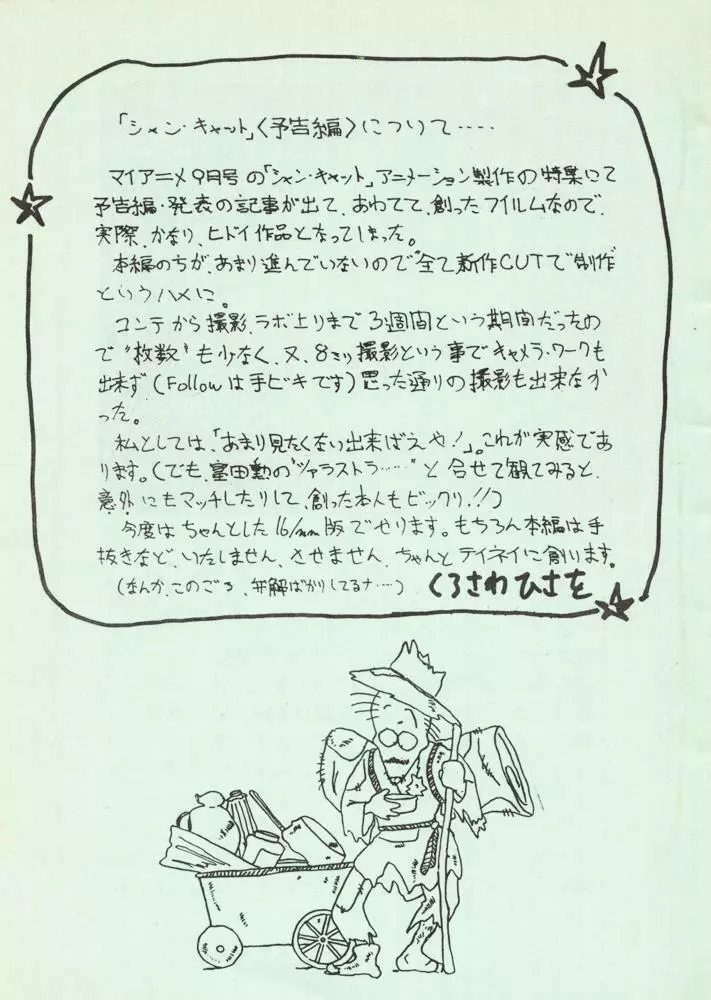 「シャン・キャット」〈予告編〉について‥‥‥
マイアニメ9月号の「シャン・キャット」アニメーション製作の特集にて
予告編・発表の記事が出て、あわてて、創ったフイルムなので、
実際、かなり、ヒドイ作品となってしまった。
本編のちが、あまり進んでいないので全て新作CUTで制作
というハメに。
コンテから撮影、ラボ上りまで3週間という期間だったの
で〝枚数〟も少なく、又、8ミリ撮影という事でキャメラ・ワークも
出来ず(Followは手ビキです)思った通りの撮影も出来なか
った。
私としては、「あまり見たくない出来ばえや!」。これが実感であ
ります。(でも、富田勲の〝ツァラストラ‥‥〟と合せて観てみると、
意外にもマッチしたりして、創った本人もビックリ!!)
今度はちゃんとした16/mm版でやります。もちろん本編は手
抜きなど、いたしません、させません、ちゃんとテイネイに創ります。
(なんか、このごろ、弁解ばかりしてるナ‥‥) くろさわひさを